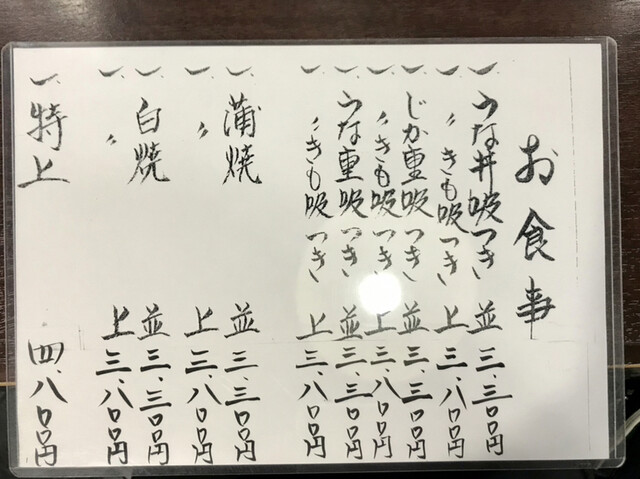 お食事
一、うな丼吸つき 並 三、三〇〇円
一、〃 きも吸つき 上 三、八〇〇円
一、じか重吸つき 並 三、三〇〇円
一、〃 きも吸つき 上 三、八〇〇円
一、うな重吸つき 並 三、三〇〇円
一、〃 きも吸つき 上 三、八〇〇円
一、蒲焼 並 三、三〇〇円
一、〃 上 三、八〇〇円
一、白焼 並 三、三〇〇円
一、〃 上 三、八〇〇円
一、特上 四、八〇〇円